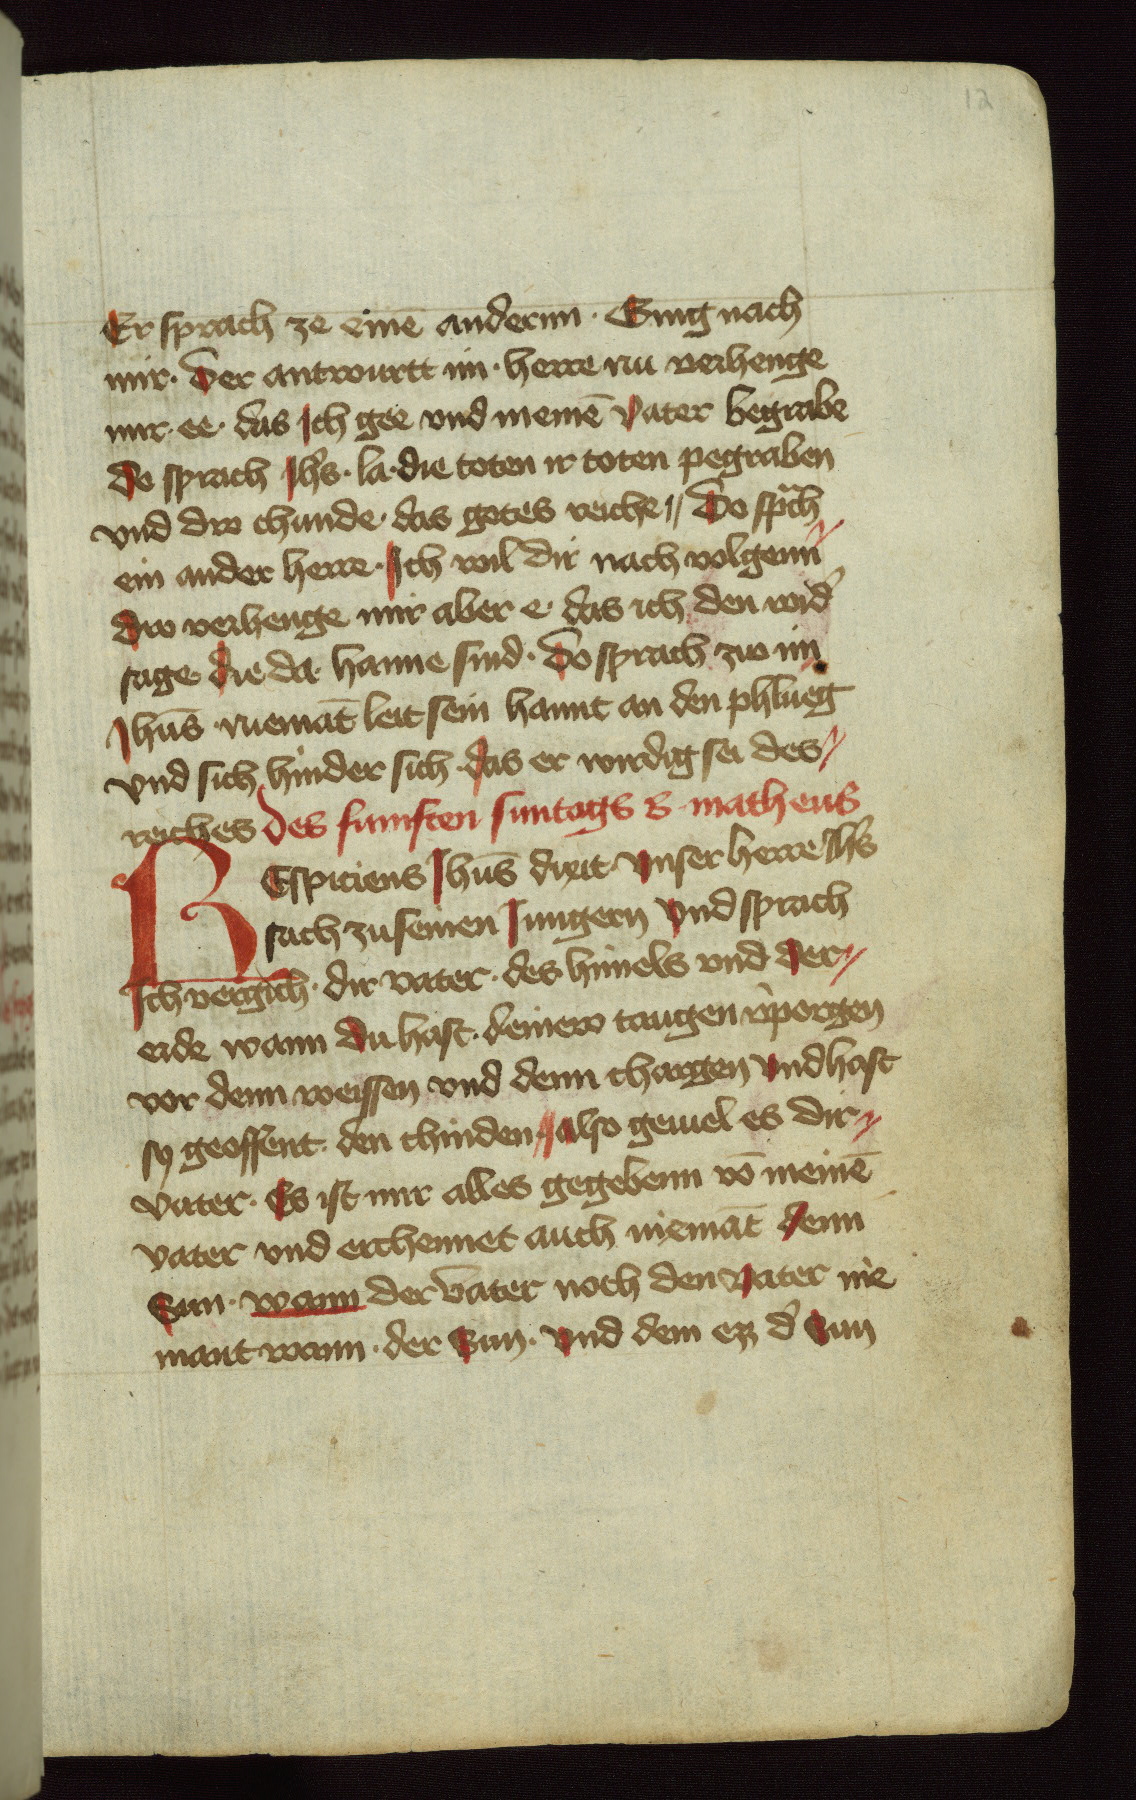 12
Er sprach ze einē andernn · Ging nach
mir · Der antwurtt im · herre nu verhenge
mir · ee · das Ich gee vnd meinē Vater begrabe
Do sprach Ihs · la · die toten ir toten pegraben
vnd dw chunde · das gotes reiche // Do sprach
ein ander herre · Ich wil dir nach volgenn //
dw verhenge mir aber e · das ich den wid'
sage · die da · haime sind · Do sprach zw im
Ihūs · niemāt leit sein hannt an den phlueg
vnd sich hinder sich · das er wirdig sei des //
reiches Des funften suntags S · matheus
REspiciens Ihūs dixit · Vnser herre Ihs
sach zu seinen Iungern Vnd sprach
Ich vergich · dir vater · des himels vnd der //
erde wann du hast · deinew taugen v'porgen
vor denn weissen vnd denn chargen Vnd hast
sy geoffent · den chinden // also geuiel es dir //
vater · Es ist mir alles gegebenn vō meinē
vater vnd erchennet auch niemāt denn
Sun · wann der Vater noch den Vater nie
mant wann · der Sun · Vnd dem ez d' Sun